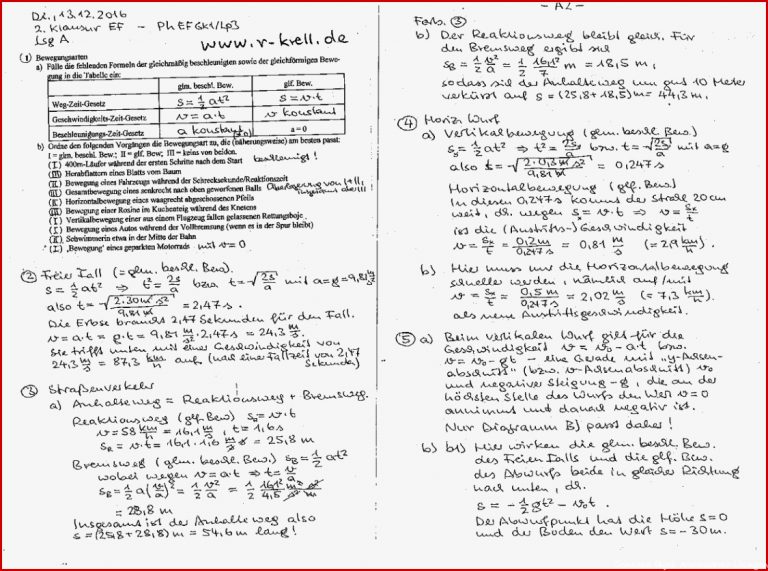 Di., 13.12.2016
2. Klausur EF – PhEFGk1/Lp3
Lsg A
www.r-krell.de
① Bewegungsarten
a) Fülle die fehlenden Formeln der gleichmäßig beschleunigten sowie der gleichförmigen Bewe-
gung in die Tabelle ein:
glm. beschl. Bew. glf. Bew.
Weg-Zeit-Gesetz s = ½ at² s = v·t
Geschwindigkeits-Zeit-Gesetz v = a·t v konstant
Beschleunigungs-Zeit-Gesetz a konstant a = 0
b) Ordne den folgenden Vorgängen die Bewegungsart zu, die (näherungsweise) am besten passt:
I = glm. beschl. Bew; II = glf. Bew; III = keins von beiden.
(I) 400m-Läufer während der ersten Schritte nach dem Start beschleunigt!
(III) Herabflattern eines Blatts vom Baum
(II) Bewegung eines Fahrzeugs während der Schrecksekunde/Reaktionszeit
Gesamtbewegung eines senkrecht nach oben geworfenen Balls
(II) Horizontalbewegung eines waagrecht abgeschossenen Pfeils
(III) Bewegung einer Rosine im Kuchenteig während des Knetens
(I) Vertikalbewegung einer aus einem Flugzeug fallen gelassenen Rettungsboje
(I) Bewegung eines Autos während der Vollbremsung (wenn es in der Spur bleibt)
(II) Schwimmerin etwa in der Mitte der Bahn
'Bewegung' eines geparkten Motorrads mit v = 0
② Freier Fall (= glm. beschl. Bew.)
s = ½ at² ⇒ t² = 2s/a bzw. t = √(2s/a) mit a = g = 9,81 m/s²
also t = √(2·30 m s² / 9,81 m) = 2,47 s.
Die Erbse braucht 2,47 Sekunden für den Fall.
v = a·t = g·t = 9,81 m/s² · 2,47 s = 24,3 m/s.
Sie trifft unten mit einer Geschwindigkeit von
24,3 m/s = 87,3 km/h auf (nach einer Fallzeit von 2,47
Sekunden)
③ Straßenverkehr
a) Anhalteweg = Reaktionsweg + Bremsweg.
Reaktionsweg (glf. Bew) s_R = v·t
v = 58 km/h = 16,1 m/s, t = 1,6 s
s_R = v·t = 16,1 · 1,6 m/s · s = 25,8 m
Bremsweg (glm. beschl. Bew.) s_B = ½ at²
wobei wegen v = a·t ⇒ t = v/a
s_B = ½ a(v/a)² = ½ v²/a = ½ 16,1²/4,5 m² s²/s² m
= 28,8 m
Insgesamt ist der Anhalteweg also
s = (25,8 + 28,8) m = 54,6 m lang!
– A2 –
Forts. ③
b) Der Reaktionsweg bleibt gleich. Für
den Bremsweg ergibt sich
s_B = ½ v²/a = ½ 16,1²/7 m = 18,5 m,
sodass sich der Anhalteweg um gut 10 Meter
verkürzt auf s = (25,8 + 18,5) m = 44,3 m.
④ Horiz. Wurf
a) Vertikalbewegung (glm. beschl. Bew.)
s_y = ½ at² ⇒ t² = 2s_y/a bzw. t = √(2s_y/a) mit a = g
also t = √(2·0,3 m s² / 9,81 m) = 0,247 s
Horizontalbewegung (glf. Bew.)
In diesen 0,247 s kommt der Strahl 20 cm
weit, d.h. wegen s = v·t ⇒ v = s_x/t
ist die (Austritts-) Geschwindigkeit
v = s_x/t = 0,2 m / 0,247 s = 0,81 m/s (= 2,9 km/h).
b) Hier muss nur die Horizontalbewegung
schneller werden, nämlich auf/mit
v = s_x/t = 0,5 m / 0,247 s = 2,02 m/s (= 7,3 km/h).
als neue Austrittsgeschwindigkeit.
⑤ a) Beim vertikalen Wurf gilt für die
Geschwindigkeit v = v₀ – a·t bzw.
v = v₀ – gt – eine Gerade mit „y-Achsen-
abschnitt" (bzw. v-Achsenabschnitt) v₀
und negativer Steigung –g, die an der
höchsten Stelle des Wurfs den Wert v = 0
annimmt und danach negativ ist.
Nur Diagramm B) passt daher!
b) b1) Hier wirken die glm. beschl. Bew.
des Freien Falls und die glf. Bew.
des Abwurfs beide in gleicher Richtung
nach unten, d.h.
s = – ½ gt² – v₀t.
Der Abwurfpunkt hat die Höhe s = 0
und der Boden den Wert s = – 30 m.